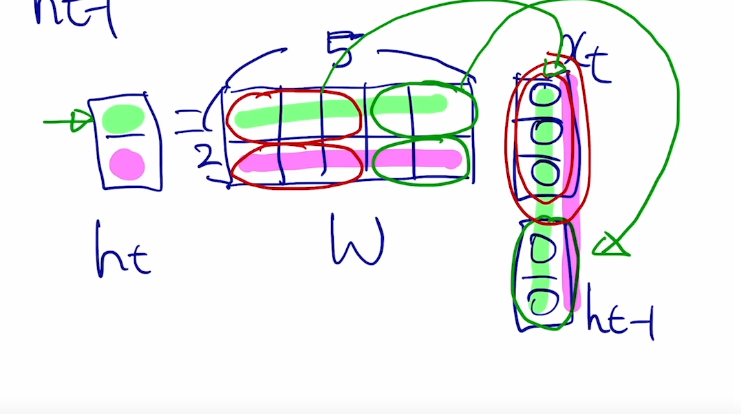 ht-1
5
xt
=
2
ht
W
ht-1